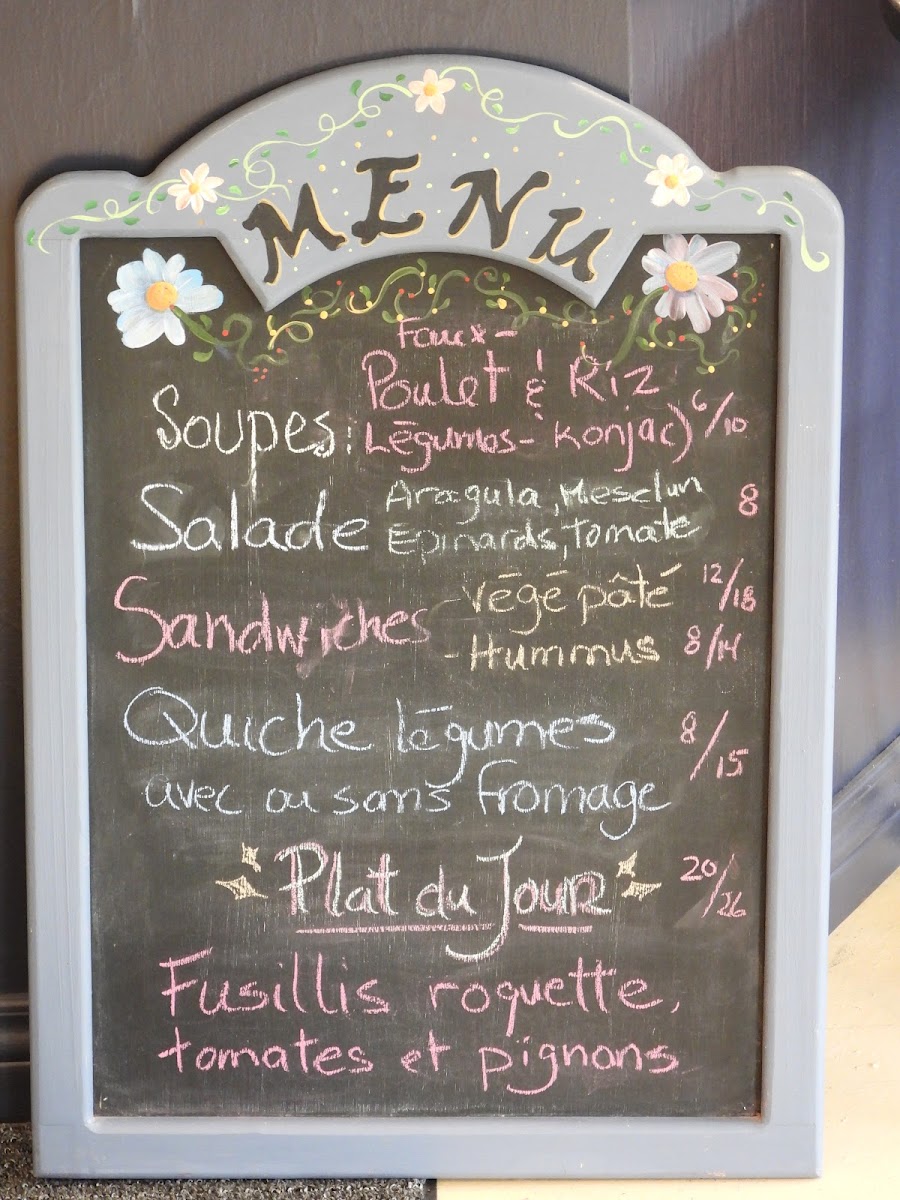 MENU
Faux-
Poulet & Riz
Soupes: Légumes - Konjac) 6/10
Salade Aragula, Mesclun 8
Epinards, Tomate
Sandwiches - végé pâté 12/18
- Hummus 8/14
Quiche légumes 8/15
avec ou sans fromage
Plat du Jour 20/26
Fusillis roquette,
tomates et pignons